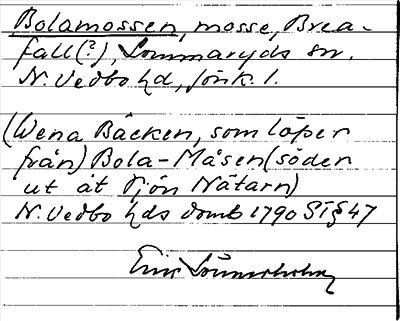 Bolamossen, mosse, Brea-
fall (?), Lommaryds sn.
N. Vedbo hd, Jönk. l.
(Wena Bäcken, som löper
från) Bola-Måsen (söder
ut åt Sjön Nätarn)
N. Vedbo hds domb 1790 ST § 47